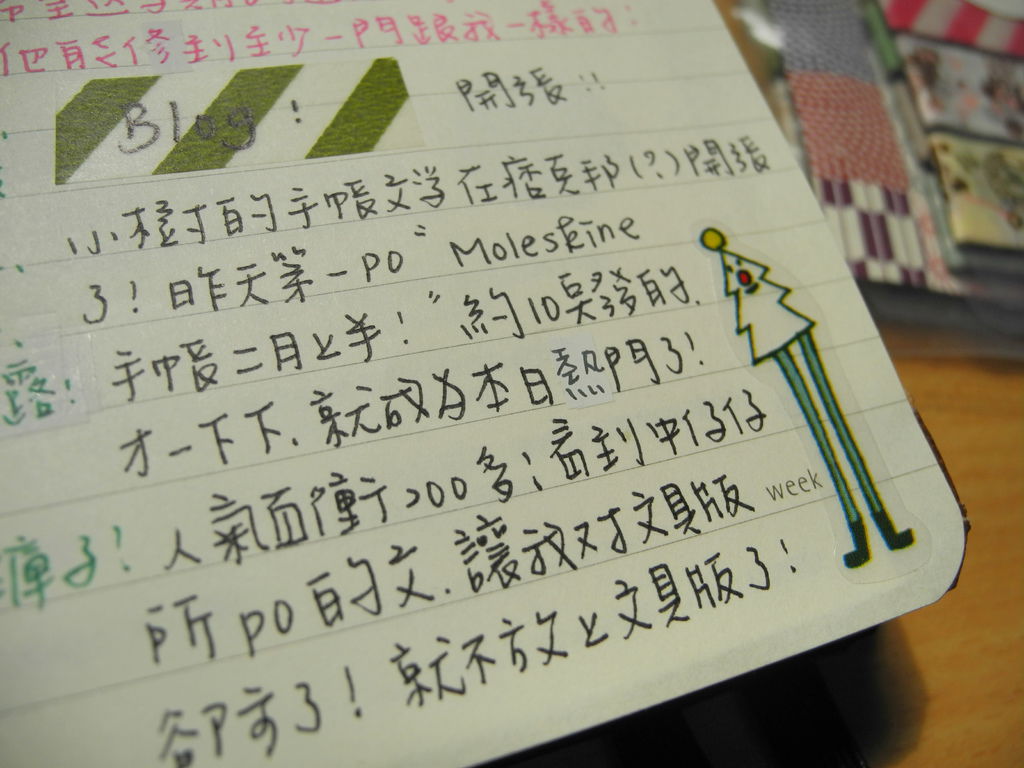 他有沒修到至少一門跟我一樣的!
Blog! 開張!!
小樹的手帳文學在痞克邦(?)開張
了!昨天第一po“Moleskine
手帳二月之半!”約10點發的.
才一下下.就成為本日熱門了!
人氣面衝了200多;看到中仔仔
所po的文.讓我对文具版 week
卻步了!就不放上文具版了!
露!
瘅了!